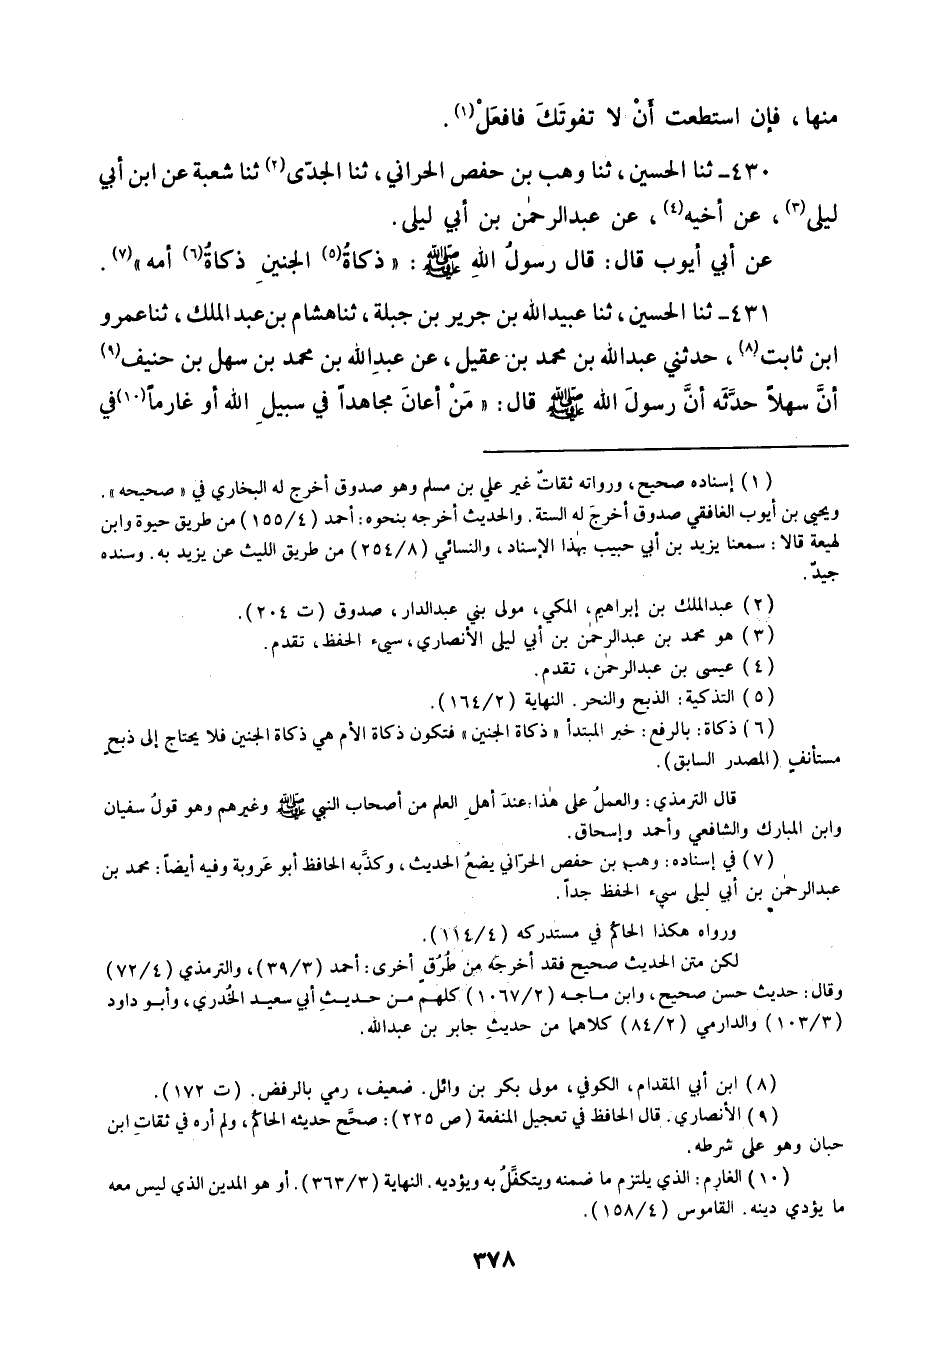 منها ، فإن استطعت أَنْ لا تفوتَكَ فافعَلْ(١) .
٤٣٠ـ ثنا الحسين ، ثنا وهب بن حفص الحراني ، ثنا الجدّى(٢) ثنا شعبة عن ابن أبي
ليلى(٣) ، عن أخيه(٤) ، عن عبدالرحمٰن بن أبي ليلى .
عن أبي أيوب قال : قال رسولُ اللهِ ﷺ : « ذكاةُ(٥) الجنينِ ذكاةُ(٦) أمه »(٧) .
٤٣١ـ ثنا الحسين ، ثنا عبيدالله بن جرير بن جبلة ، ثنا هشام بن عبد الملك ، ثنا عمرو
ابن ثابت(٨) ، حدثني عبدالله بن محمد بن عقيل ، عن عبدِالله بن محمد بن سهل بن حنيف(٩)
أنَّ سهلاً حدَّثَه أنَّ رسولَ الله ﷺ قال : « مَنْ أعانَ مجاهداً في سبيلِ الله أو غارماً(١٠) في
(١) إسناده صحيح ، ورواته ثقاتٌ غير علي بن مسلم وهو صدوق أخرج له البخاري في « صحيحه » .
ويحيى بن أيوب الغافقي صدوق أخرجَ له الستة . والحديث أخرجه بنحوه : أحمد (٤/ ١٥٥) من طريق حيوة وابن
لهيعة قالا : سمعنا يزيد بن أبي حبيب بهٰذا الإسناد ، والنسائي (٨/ ٢٥٤) من طريق الليث عن يزيد به . وسنده
جيدٌ .
(٢) عبدالملك بن إبراهيم ، المكي ، مولى بني عبدالدار ، صدوق (ت ٢٠٤) .
(٣) هو محمد بن عبدالرحمٰن بن أبي ليلى الأنصاري ، سيىء الحفظ ، تقدم .
(٤) عيسى بن عبدالرحمٰن ، تقدم .
(٥) التذكية : الذبح والنحر . النهاية (٢/ ١٦٤) .
(٦) ذكاة : بالرفع : خبر المبتدأ « ذكاة الجنين » فتكون ذكاة الأم هي ذكاة الجنين فلا يحتاج إلى ذبحٍ
مستأنفٍ (المصدر السابق) .
قال الترمذي : والعملُ على هٰذا عندَ أهلِ العلم من أصحاب النبي ﷺ وغيرهم وهو قولُ سفيان
وابن المبارك والشافعي وأحمد وإسحاق .
(٧) في إسناده : وهب بن حفص الحرّاني يضعُ الحديث ، وكذَّبه الحافظ أبو عَروبة وفيه أيضاً : محمد بن
عبدالرحمٰن بن أبي ليلى سيء الحفظ جداً .
ورواه هكذا الحاكمُ في مستدركه (٤/ ١١٤) .
لكن متن الحديث صحيح فقد أخرجَه مِنْ طُرُقٍ أخرى : أحمد (٣/ ٣٩) ، والترمذي (٤/ ٧٢)
وقال : حديث حسن صحيح ، وابن ماجه (٢/ ١٠٦٧) كلهم من حديثِ أبي سعيد الخُدري ، وأبو داود
(٣/ ١٠٣) والدارمي (٢/ ٨٤) كلاهما من حديثِ جابر بن عبدالله .
(٨) ابن أبي المقدام ، الكوفي ، مولى بكر بن وائل . ضعيف ، رمي بالرفض . (ت ١٧٢) .
(٩) الأنصاري . قال الحافظ في تعجيل المنفعة (ص ٢٢٥) : صحَّح حديثه الحاكمُ ، ولم أره في ثقاتِ ابن
حبان وهو على شرطه .
(١٠) الغارِم : الذي يلتزم ما ضمنه ويتكفَّلُ به ويؤديه . النهاية (٣/ ٣٦٣) . أو هو المدين الذي ليس معه
ما يؤدي دينه . القاموس (٤/ ١٥٨) .
٣٧٨